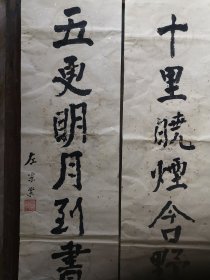 十里曉煙含野
五更明月到書
左宗棠